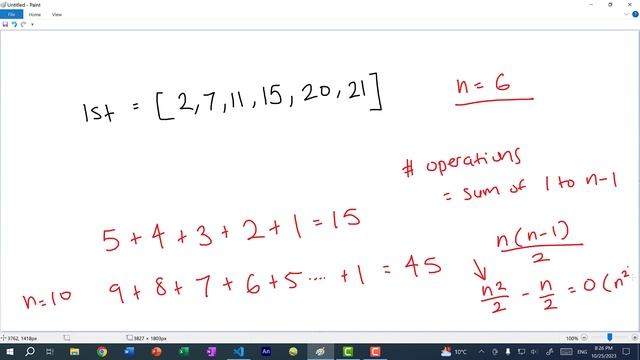 Untitled - Paint
File
View
lst = [2,7,11,15,20,21]
n = 6
# operations
= sum of 1 to n-1
5 + 4 + 3 + 2 + 1 = 15
n(n-1)
2
n=10 9 + 8 + 7 + 6 + 5 .... + 1 = 45
n2/2 - n/2 = O(n2
3762, 1418px
3827 × 1803px
100%
10°C
ENG
8:26 PM
10/25/2023